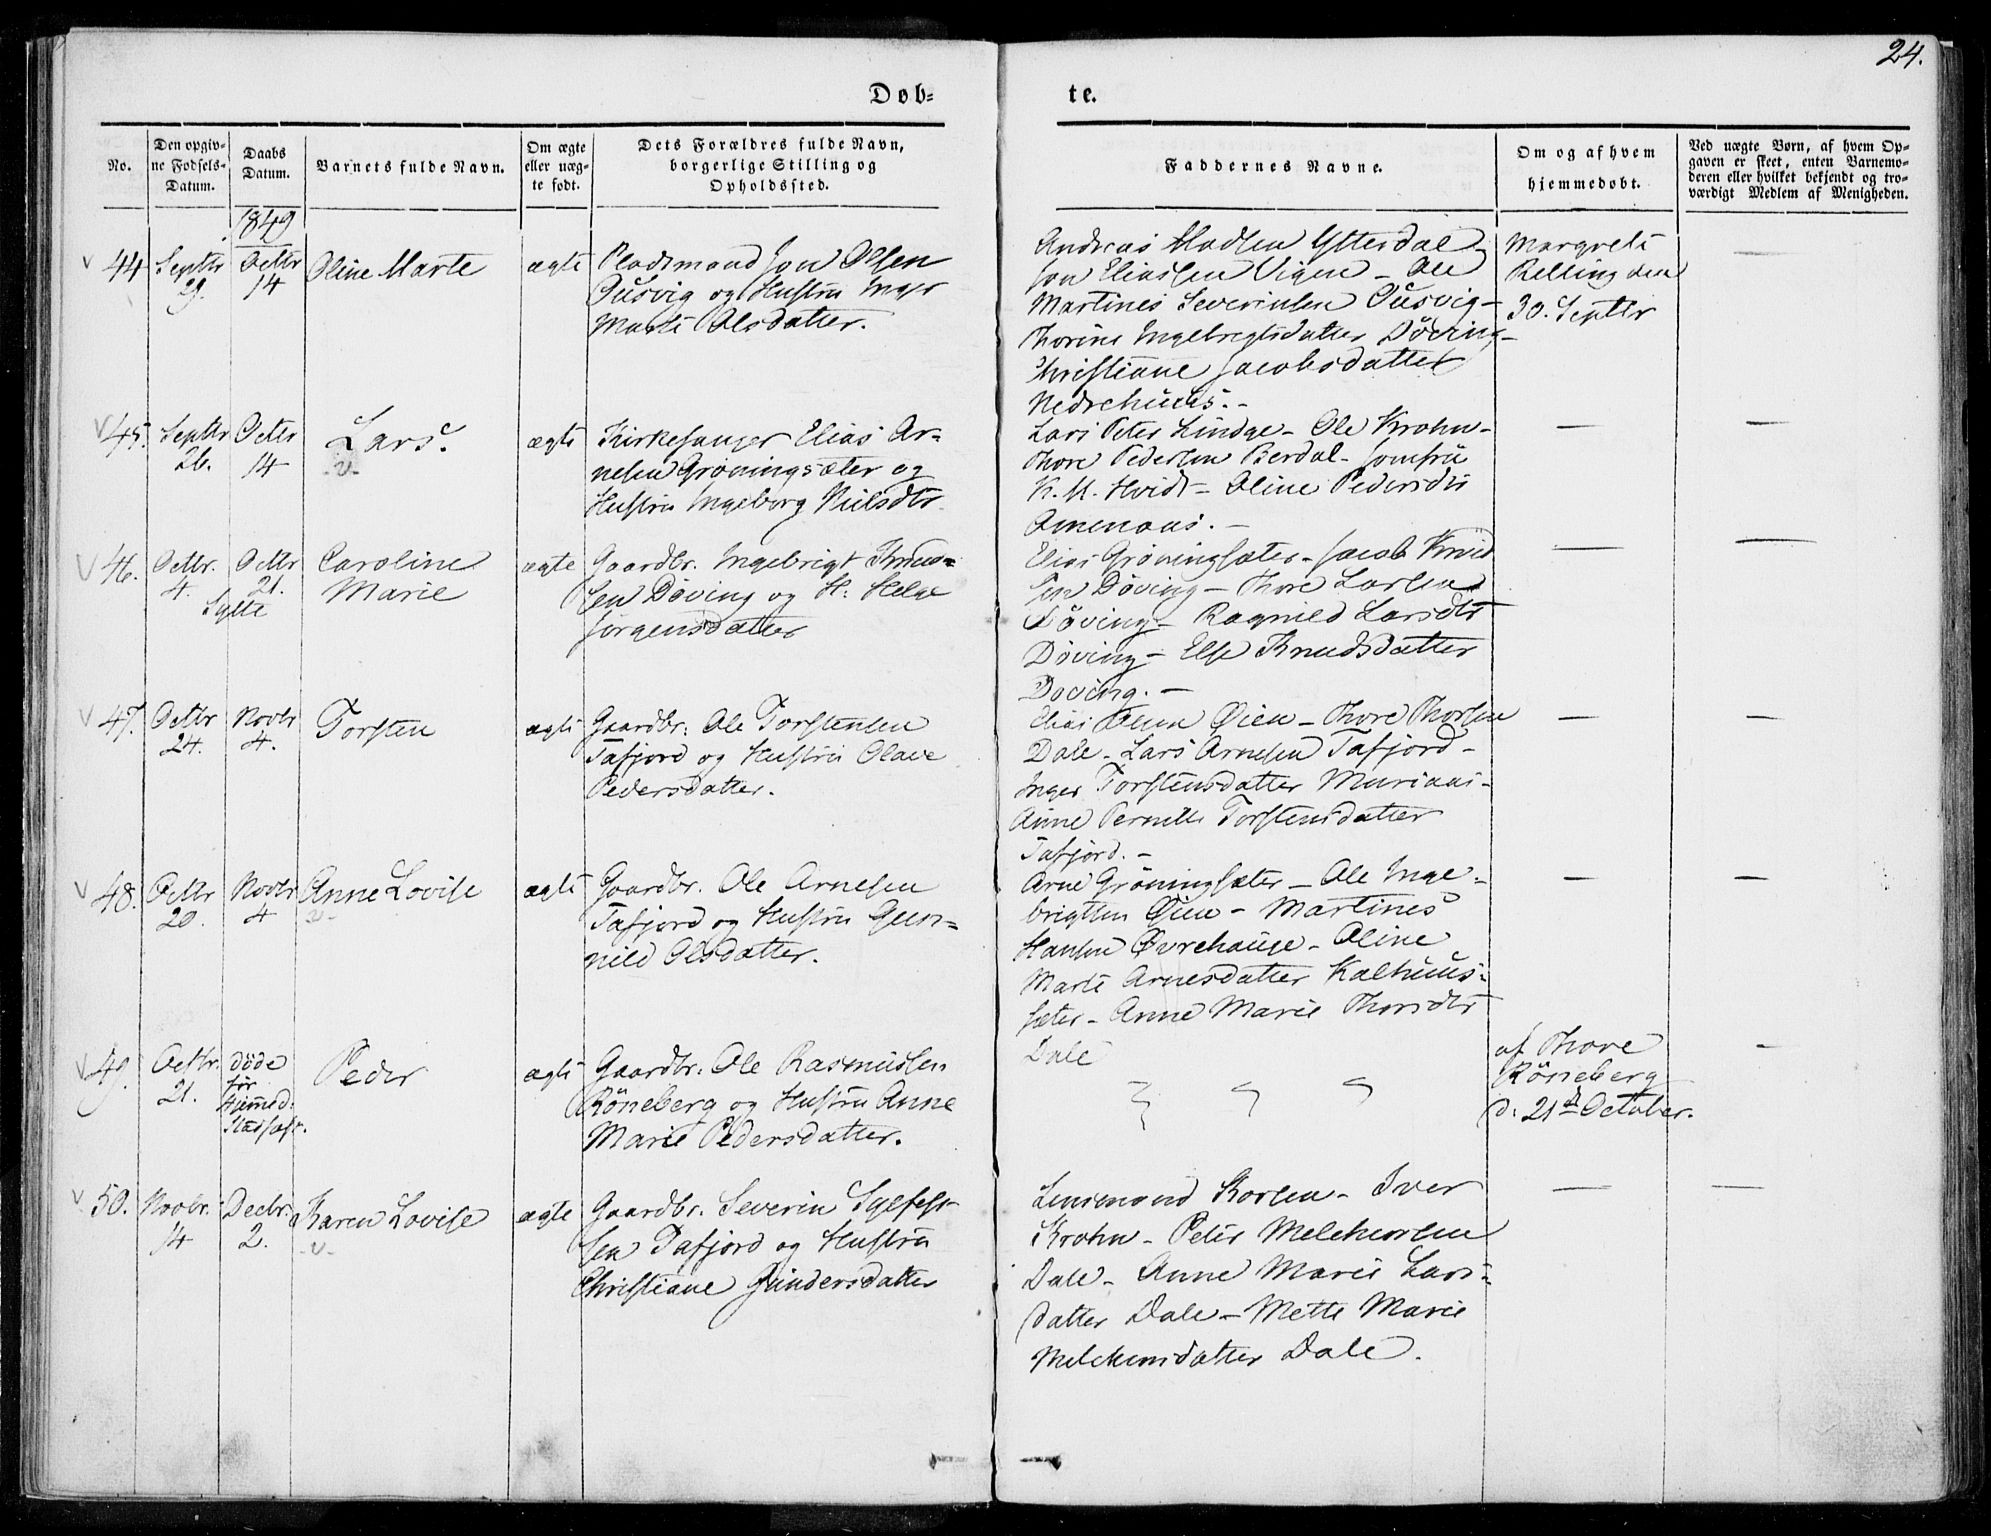 24.
Døb=
te.
No.
Den opgiv=
ne Fødsels=
Datum.
Daabs
Datum.
Barnets fulde Navn.
Om ægte
eller uæg=
te født.
Dets Forældres fulde Navn,
borgerlige Stilling og
Opholdssted.
Faddernes Navne.
Om og af hvem
hjemmedøbt.
Ved uægte Børn, af hvem Op=
gaven er skeet, enten Barnemo=
deren eller hvilket bekjendt og tro=
værdigt Medlem af Menigheden.
1849
44
Septbr
29.
Octbr
14
Oline Marte
ægte
Pladsmand Jon Olsen
Uusvig og Hustru Inger
Marte Olsdatter.
Andreas Madsen Ytterdal
Jon Eliassen Vigen – Ole
Martines Severinsen Uusvig –
Thorine Ingebregtsdatter Døving –
Christiane Jacobsdatter
Nedrehuus. –
Margrete
Relling den
30. Septbr
45.
Septbr
26.
Octbr
14
Lars.
-v-
ægte
Kirkesanger Elias Ar=
nesen Grøningsæter og
Hustru Ingeborg Nielsdtr
Lars Peter Lindge – Ole Krohn –
Thore Pedersen Berdal – Jomfru
K. M. Hvidt – Oline Pedersdtr
Amenaas. –
46.
Octbr.
4.
Octbr
21.
Sylte
Caroline
Marie
ægte
Gaardbr. Ingebrigt Knud=
sen Døving og H: Helge
Jørgensdatter
Elias Grøningsæter – Jacob Knud
sen Døving – Thore Larsen
Døving – Ragnild Larsdtr
Døving – Else Knudsdatter
Døving. –
47.
Octbr
24.
Novbr
4.
Torsten
ægte
Gaardbr: Ole Torstensen
Tafjord og Hustru Olave
Pedersdatter.
Elias Olsen Øien – Thore Thorsen
Dale – Lars Arnesen Tafjord –
Inger Torstensdatter Muriaas –
Anne Pernille Torstensdatter
Tafjord. –
48.
Octbr
20.
Novbr
4
Anne Lovise
-v-
ægte
Gaardbr. Ole Arnesen
Tafjord og Hustru Gun=
nild Olsdatter.
Arne Grøningsæter – Ole Inge=
brigtsen Øien – Martines
Hansen Øvrehause – Oline
Marte Arnesdatter Kalhuus=
sæter – Anne Marie Thorsdtr
Dale
49.
Octbr.
21.
døde
før
Hjemmed:
Stadfæst.
Peder
ægte
Gaardbr: Ole Rasmussen
Røneberg og Hustru Anne
Marie Pedersdatter.
af Thore
Røneberg
d: 21de October.
50.
Novbr.
14
Decbr.
2.
Karen Lovise
-v-
ægte
Gaardbr. Severin Sylfest
sen Tafjord og Hustru
Christiane Gundersdatter
Lensmand Korsen – Iver
Krohn – Peter Melchiorsen
Dale – Anne Marie Lars=
datter Dale – Mette Marie
Melchiorsdatter Dale.